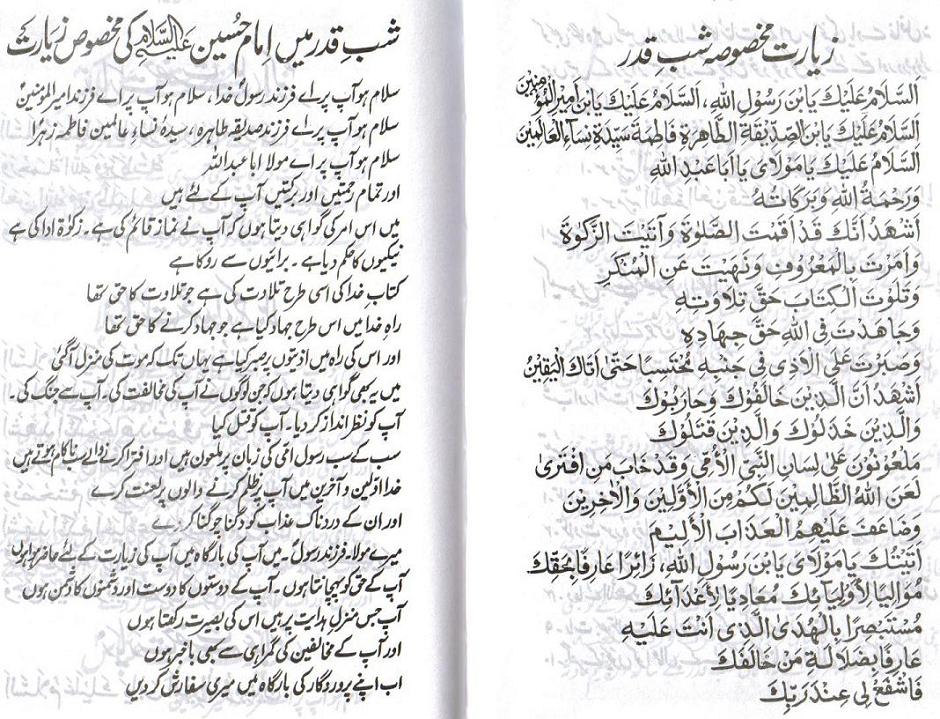 زیارت مخصوصہ شب قدر
اَلسَّلَامُ عَلَيْكَ يَابْنَ رَسُولِ اللهِ، اَلسَّلَامُ عَلَيْكَ يَابْنَ اَمِيْرِ الْمُؤْمِنِيْنَ
اَلسَّلَامُ عَلَيْكَ يَابْنَ الصِّدِّيْقَةِ الطَّاهِرَةِ فَاطِمَةَ سَيِّدَةِ نِسَآءِ الْعَالَمِيْنَ
اَلسَّلَامُ عَلَيْكَ يَا مَوْلَایَ يَا اَبَا عَبْدِ اللهِ
وَرَحْمَةُ اللهِ وَبَرَكَاتُهُ
اَشْهَدُ اَنَّكَ قَدْ اَقَمْتَ الصَّلٰوةَ وَآتَيْتَ الزَّكٰوةَ
وَاَمَرْتَ بِالْمَعْرُوْفِ وَنَهَيْتَ عَنِ الْمُنْكَرِ
وَتَلَوْتَ الْكِتَابَ حَقَّ تِلَاوَتِهِ
وَجَاهَدْتَ فِی اللهِ حَقَّ جِهَادِهِ
وَصَبَرْتَ عَلَی الْاَذٰی فِی جَنْبِهِ مُحْتَسِبًا حَتّٰی اَتَاكَ الْيَقِيْنُ
اَشْهَدُ اَنَّ الَّذِيْنَ خَالَفُوْكَ وَحَارَبُوْكَ
وَالَّذِيْنَ خَذَلُوْكَ وَالَّذِيْنَ قَتَلُوْكَ
مَلْعُوْنُوْنَ عَلٰی لِسَانِ النَّبِیِّ الْاُمِّیِّ وَقَدْ خَابَ مَنِ افْتَرٰی
لَعَنَ اللهُ الظَّالِمِيْنَ لَكُمْ مِنَ الْاَوَّلِيْنَ وَالْاٰخِرِيْنَ
وَضَاعَفَ عَلَيْهِمُ الْعَذَابَ الْاَلِيْمَ
اَتَيْتُكَ يَا مَوْلَایَ يَابْنَ رَسُوْلِ اللهِ، زَائِرًا عَارِفًا بِحَقِّكَ
مُوَالِيًا لِاَوْلِيَآئِكَ مُعَادِيًا لِاَعْدَآئِكَ
مُسْتَبْصِرًا بِالْهُدَی الَّذِی اَنْتَ عَلَيْهِ
عَارِفًا بِضَلَالَةِ مَنْ خَالَفَكَ
فَاشْفَعْ لِی عِنْدَ رَبِّكَ
شب قدر میں امام حسین علیہ السلام کی مخصوص زیارت
سلام ہو آپ پر اے فرزند رسول خدا، سلام ہو آپ پر اے فرزند امیر المؤمنینؑ
سلام ہو آپ پر اے فرزند صدیقہ طاہرہ، سیدۂ نساءِ عالمین فاطمہ زہرا
سلام ہو آپ پر اے مولا ابا عبد اللہ
اور تمام رحمتیں اور برکتیں آپ کے لئے ہیں
میں اس امر کی گواہی دیتا ہوں کہ آپ نے نماز قائم کی ہے۔ زکوٰۃ ادا کی ہے
نیکیوں کا حکم دیا ہے۔ برائیوں سے روکا ہے
کتاب خدا کی اسی طرح تلاوت کی ہے جو تلاوت کا حق تھا
راہِ خدا میں اس طرح جہاد کیا ہے جو جہاد کرنے کا حق تھا
اور اس کی راہ میں اذیتوں پر صبر کیا ہے یہاں تک کہ موت کی منزل آگئی
میں یہ بھی گواہی دیتا ہوں کہ جن لوگوں نے آپ کی مخالفت کی۔ آپ سے جنگ کی۔
آپ کو نظر انداز کر دیا۔ آپ کو قتل کیا
سب کے سب رسول امی کی زبان پر ملعون ہیں اور افترا کرنے والے سب ناکام ہوتے ہیں
خدا اولین و آخرین میں آپ پر ظلم کرنے والوں پر لعنت کرے
اور ان کے دردناک عذاب کو دگنا چوگنا کر دے
میرے مولا۔ فرزند رسولؐ۔ میں آپ کی بارگاہ میں آپ کی زیارت کے لئے حاضر ہوا ہوں
آپ کے حق کو پہچانتا ہوں۔ آپ کے دوستوں کا دوست اور دشمنوں کا دشمن ہوں
آپ جس منزل ہدایت پر ہیں اس کی بصیرت رکھتا ہوں
اور آپ کے مخالفین کی گمراہی سے بھی باخبر ہوں
اب اپنے پروردگار کی بارگاہ میں میری سفارش کر دیں